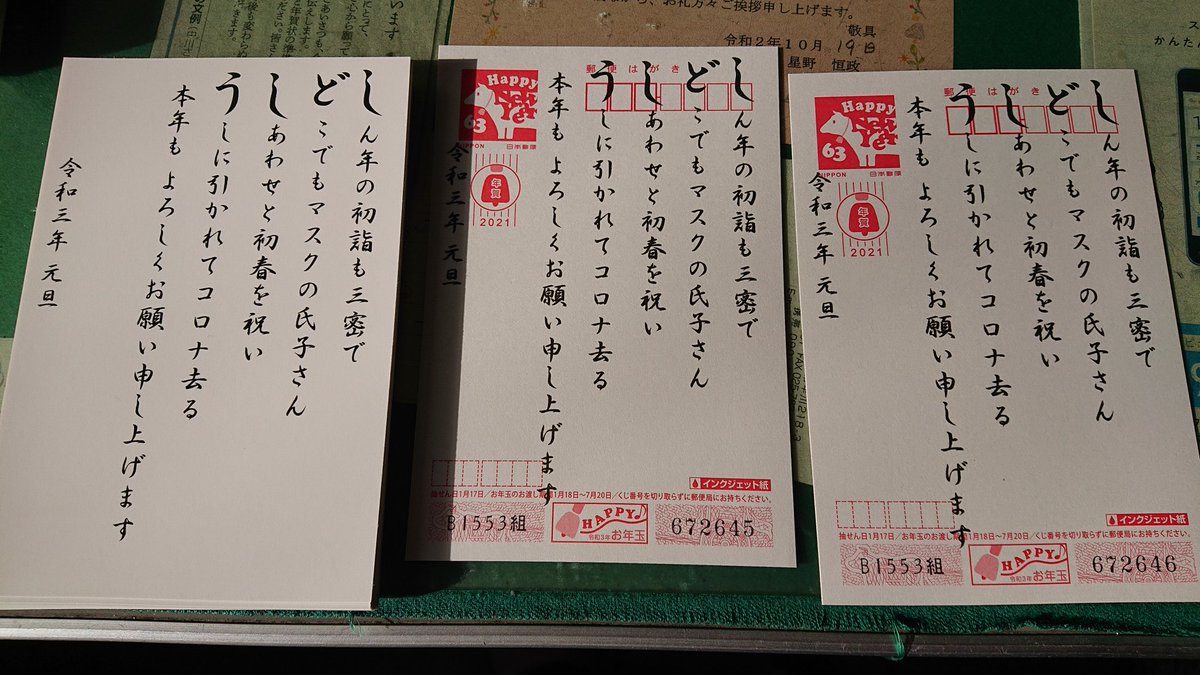 お礼方々ご挨拶申し上げます。
敬具
令和2年10月 19日
星野 恒政
文例
います
かんた
しん年の初詣も三密で
どこでもマスクの氏子さん
しあわせと初春を祝い
うしに引かれてコロナ去る
本年も よろしくお願い申し上げます
令和三年 元旦
郵便はがき
Happy
63
NIPPON 日本郵便
年賀
2021
しん年の初詣も三密で
どこでもマスクの氏子さん
しあわせと初春を祝い
うしに引かれてコロナ去る
本年も よろしくお願い申し上げます
令和三年 元旦
インクジェット紙
抽せん日1月17日/お年玉のお渡し期間1月18日~7月20日/くじ番号を切り取らずに郵便局にお持ちください。
B1553組
HAPPY
令和3年お年玉
672645
郵便はがき
Happy
63
NIPPON 日本郵便
年賀
2021
しん年の初詣も三密で
どこでもマスクの氏子さん
しあわせと初春を祝い
うしに引かれてコロナ去る
本年も よろしくお願い申し上げます
令和三年 元旦
インクジェット紙
抽せん日1月17日/お年玉のお渡し期間1月18日~7月20日/くじ番号を切り取らずに郵便局にお持ちください。
B1553組
HAPPY
令和3年お年玉
672646